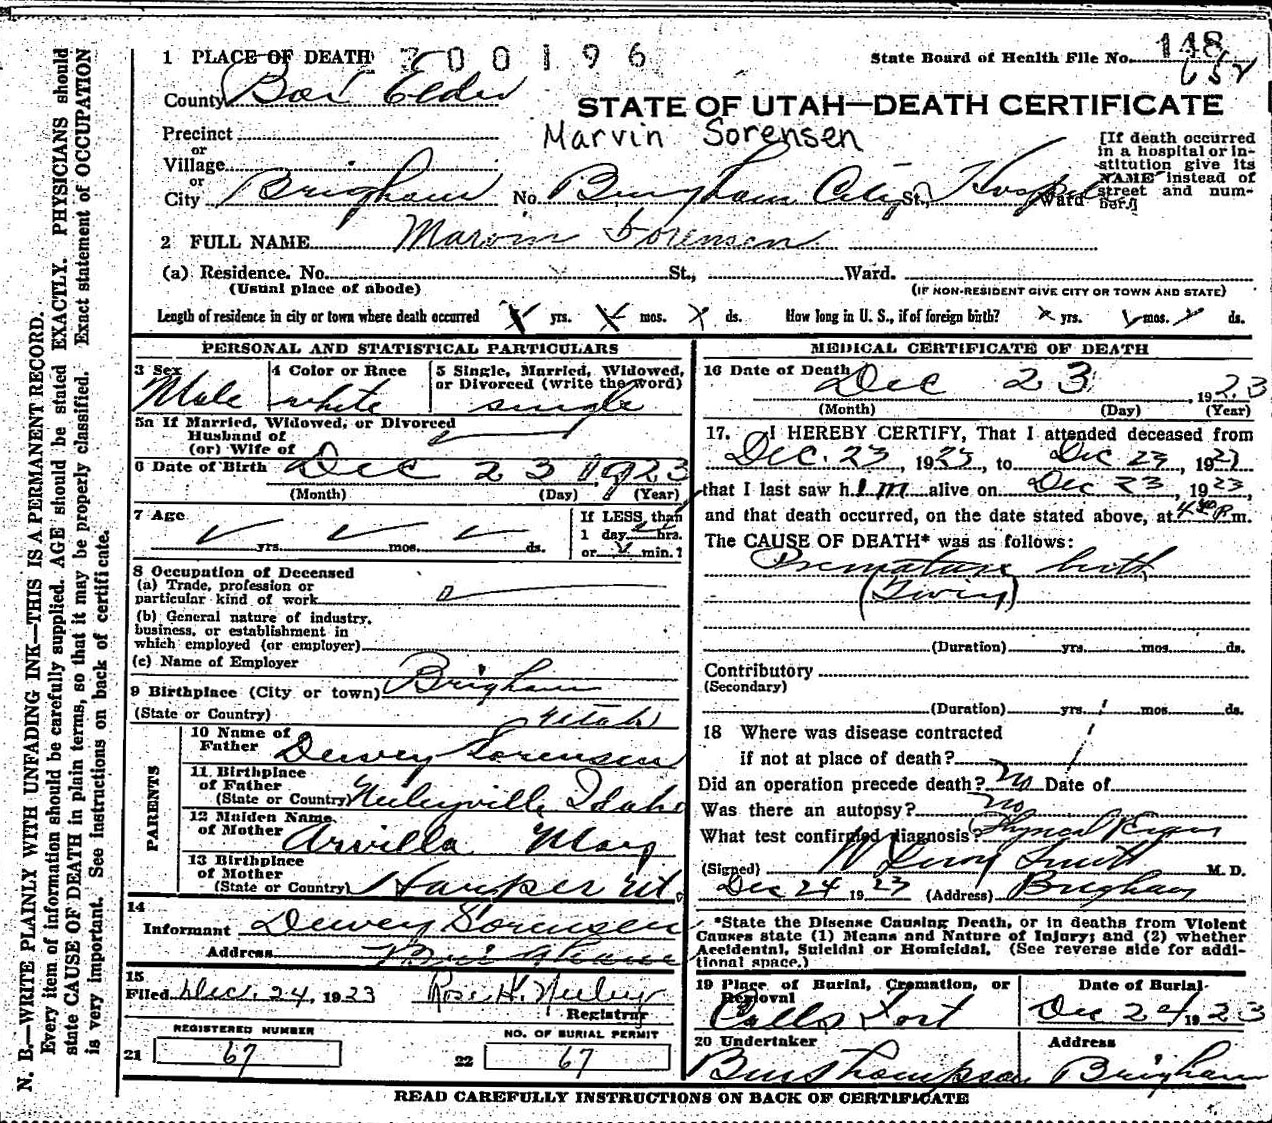 1 PLACE OF DEATH 700196
State Board of Health File No. 148
652
County Box Elder
STATE OF UTAH—DEATH CERTIFICATE
Marvin Sorensen
Precinct
or
Village
or
City Brigham No. Brigham City St., Hospital Ward
[If death occurred
in a hospital or in-
stitution give its
NAME instead of
street and num-
ber.]
2 FULL NAME Marvin Sorensen
(a) Residence. No. St., Ward.
(Usual place of abode) (IF NON-RESIDENT GIVE CITY OR TOWN AND STATE)
Length of residence in city or town where death occurred yrs. mos. ds. How long in U. S., if of foreign birth? yrs. mos. ds.
PERSONAL AND STATISTICAL PARTICULARS
3 Sex
Male
4 Color or Race
white
5 Single, Married, Widowed,
or Divorced (write the word)
single
5a If Married, Widowed, or Divorced
Husband of
(or) Wife of
6 Date of Birth Dec 23 1923
(Month) (Day) (Year)
7 Age
yrs. mos. ds.
If LESS than
1 day hrs.
or min.?
8 Occupation of Deceased
(a) Trade, profession or
particular kind of work
(b) General nature of industry,
business, or establishment in
which employed (or employer)
(c) Name of Employer
9 Birthplace (City or town) Brigham
(State or Country) Utah
PARENTS
10 Name of
Father Dewey Sorensen
11 Birthplace
of Father
(State or Country) Neeleyville, Idaho
12 Maiden Name
of Mother Arvilla May
13 Birthplace
of Mother
(State or Country) Harper Ut.
14
Informant Dewey Sorensen
Address Brigham
15
Filed Dec. 24, 1923 Rose H. Neeley
Registrar
REGISTERED NUMBER
21 67
NO. OF BURIAL PERMIT
22 67
MEDICAL CERTIFICATE OF DEATH
16 Date of Death Dec 23, 1923
(Month) (Day) (Year)
17. I HEREBY CERTIFY, That I attended deceased from
Dec. 23, 1923, to Dec 23, 1923
that I last saw him alive on Dec 23, 1923,
and that death occurred, on the date stated above, at 4 P m.
The CAUSE OF DEATH* was as follows:
Premature birth
(Twin)
(Duration) yrs. mos. ds.
Contributory
(Secondary)
(Duration) yrs. mos. ds.
18 Where was disease contracted
if not at place of death?
Did an operation precede death? no Date of
Was there an autopsy? no
What test confirmed diagnosis?
(Signed) Smith M. D.
Dec 24 1923 (Address) Brigham
*State the Disease Causing Death, or in deaths from Violent
Causes state (1) Means and Nature of Injury; and (2) whether
Accidental, Suicidal or Homicidal. (See reverse side for addi-
tional space.)
19 Place of Burial, Cremation, or
Removal
Calls Fort
Date of Burial
Dec 24 1923
20 Undertaker
Thompson
Address
Brigham
READ CAREFULLY INSTRUCTIONS ON BACK OF CERTIFICATE
N. B.—WRITE PLAINLY WITH UNFADING INK—THIS IS A PERMANENT RECORD.
Every item of information should be carefully supplied. AGE should be stated EXACTLY. PHYSICIANS should
state CAUSE OF DEATH in plain terms, so that it may be properly classified. Exact statement of OCCUPATION
is very important. See instructions on back of certificate.